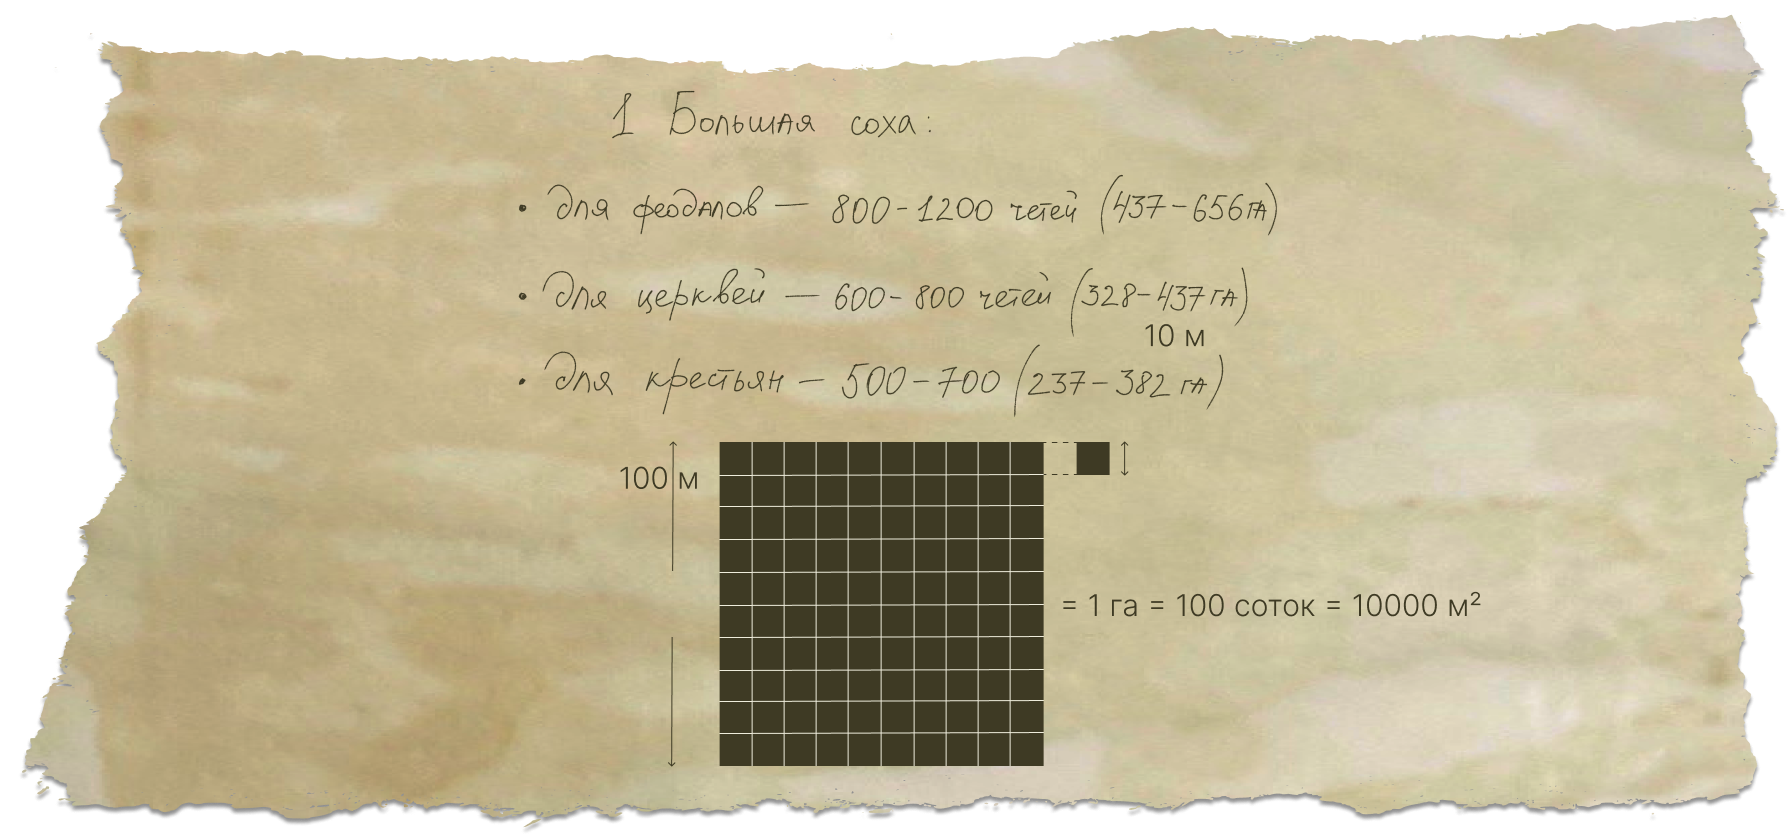 1 Большая соха:
• для феодалов — 800-1200 четей (437-656га)
• для церквей — 600-800 четей (328-437га)
10 м
• для крестьян — 500-700 (237-382 га)
100 м
= 1 га = 100 соток = 10000 м²